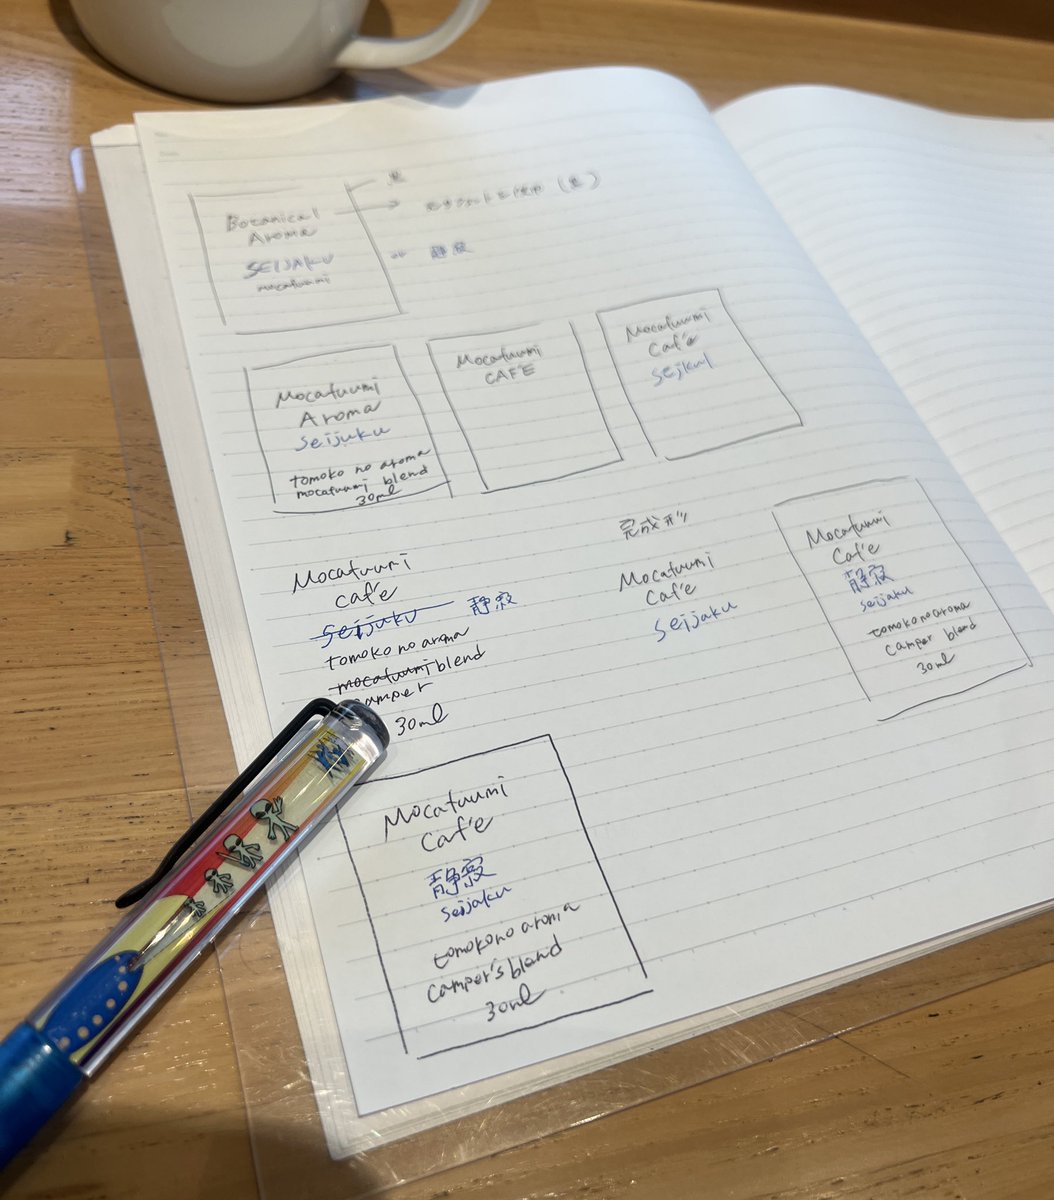 黒
Botanical
Aroma
SEIJAKU
mocatuumi
(黒)
or 静寂
Mocatuumi
Aroma
Seijuku
tomoko no aroma
mocatuumi blend
30ml
Mocatuumi
CAFE
Mocatuumi
Caf'e
Mocatuumi
caf'e
seijuku 静寂
tomoko no aroma
mocatuumi blend
camper
30ml
完成形
Mocatuumi
Caf'e
seijaku
Mocatuumi
Caf'e
静寂
seijaku
tomoko no aroma
camper blend
30ml
Mocatuumi
Caf'e
静寂
seijaku
tomoko no aroma
camper's blend
30ml